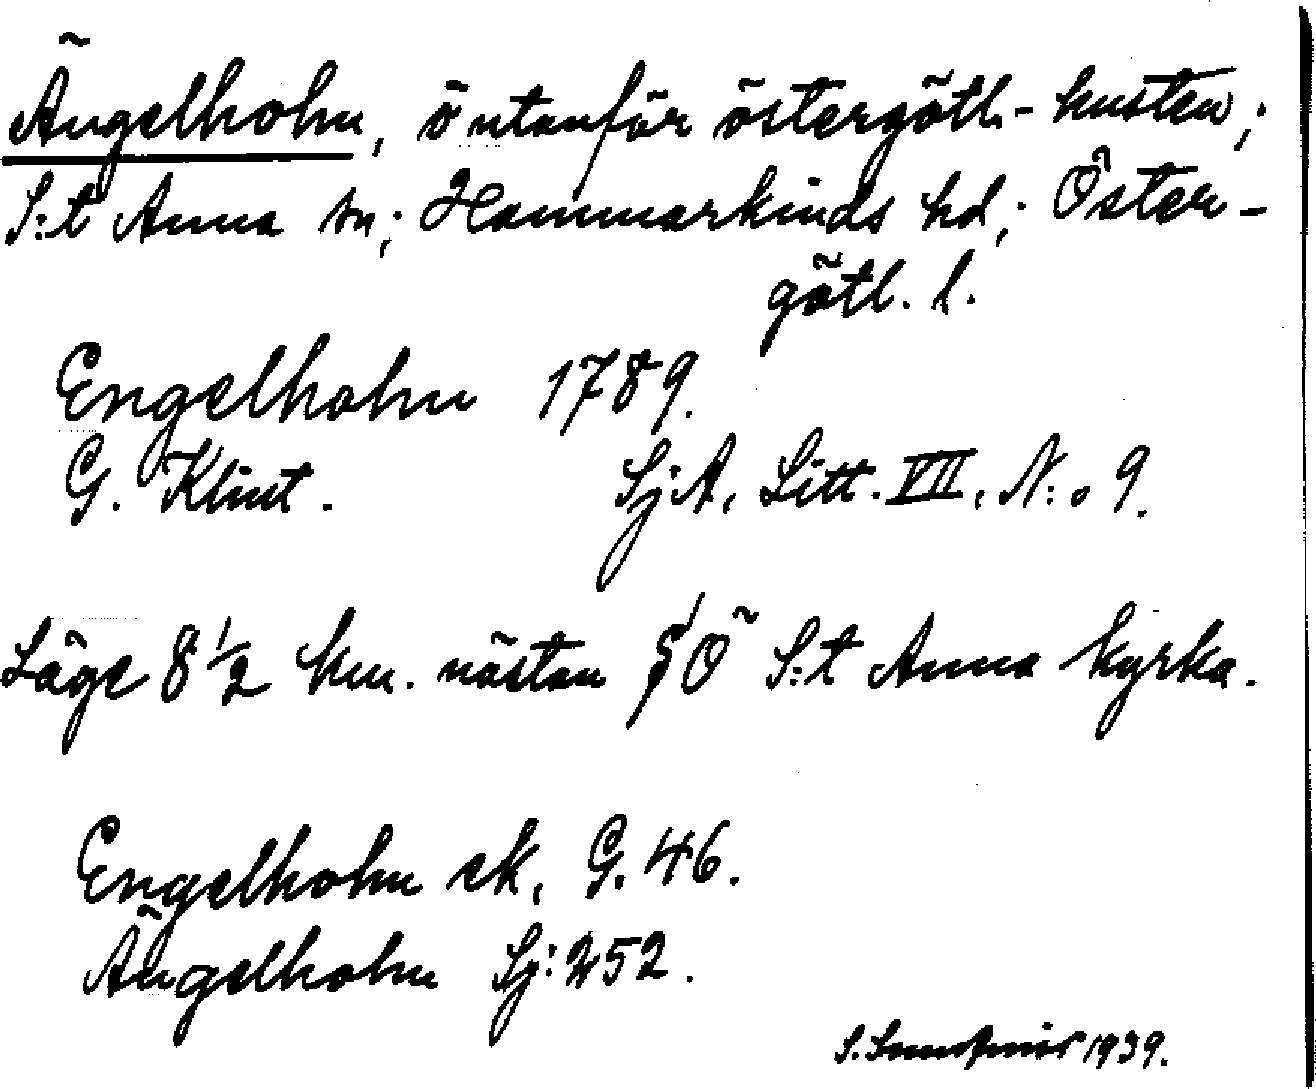 Ängelholm, ö utanför östergötl.- kusten;
S:t Anna sn; Hammarkinds hd; Öster-
götl. l.
Engelholm 1789.
G. Klint. SjA, Litt. VII, N:o 9.
Läge 8 1/2 km. nästan SO S:t Anna kyrka.
Engelholm ek, G. 46.
Ängelholm Sj: 252.
S. 1939.